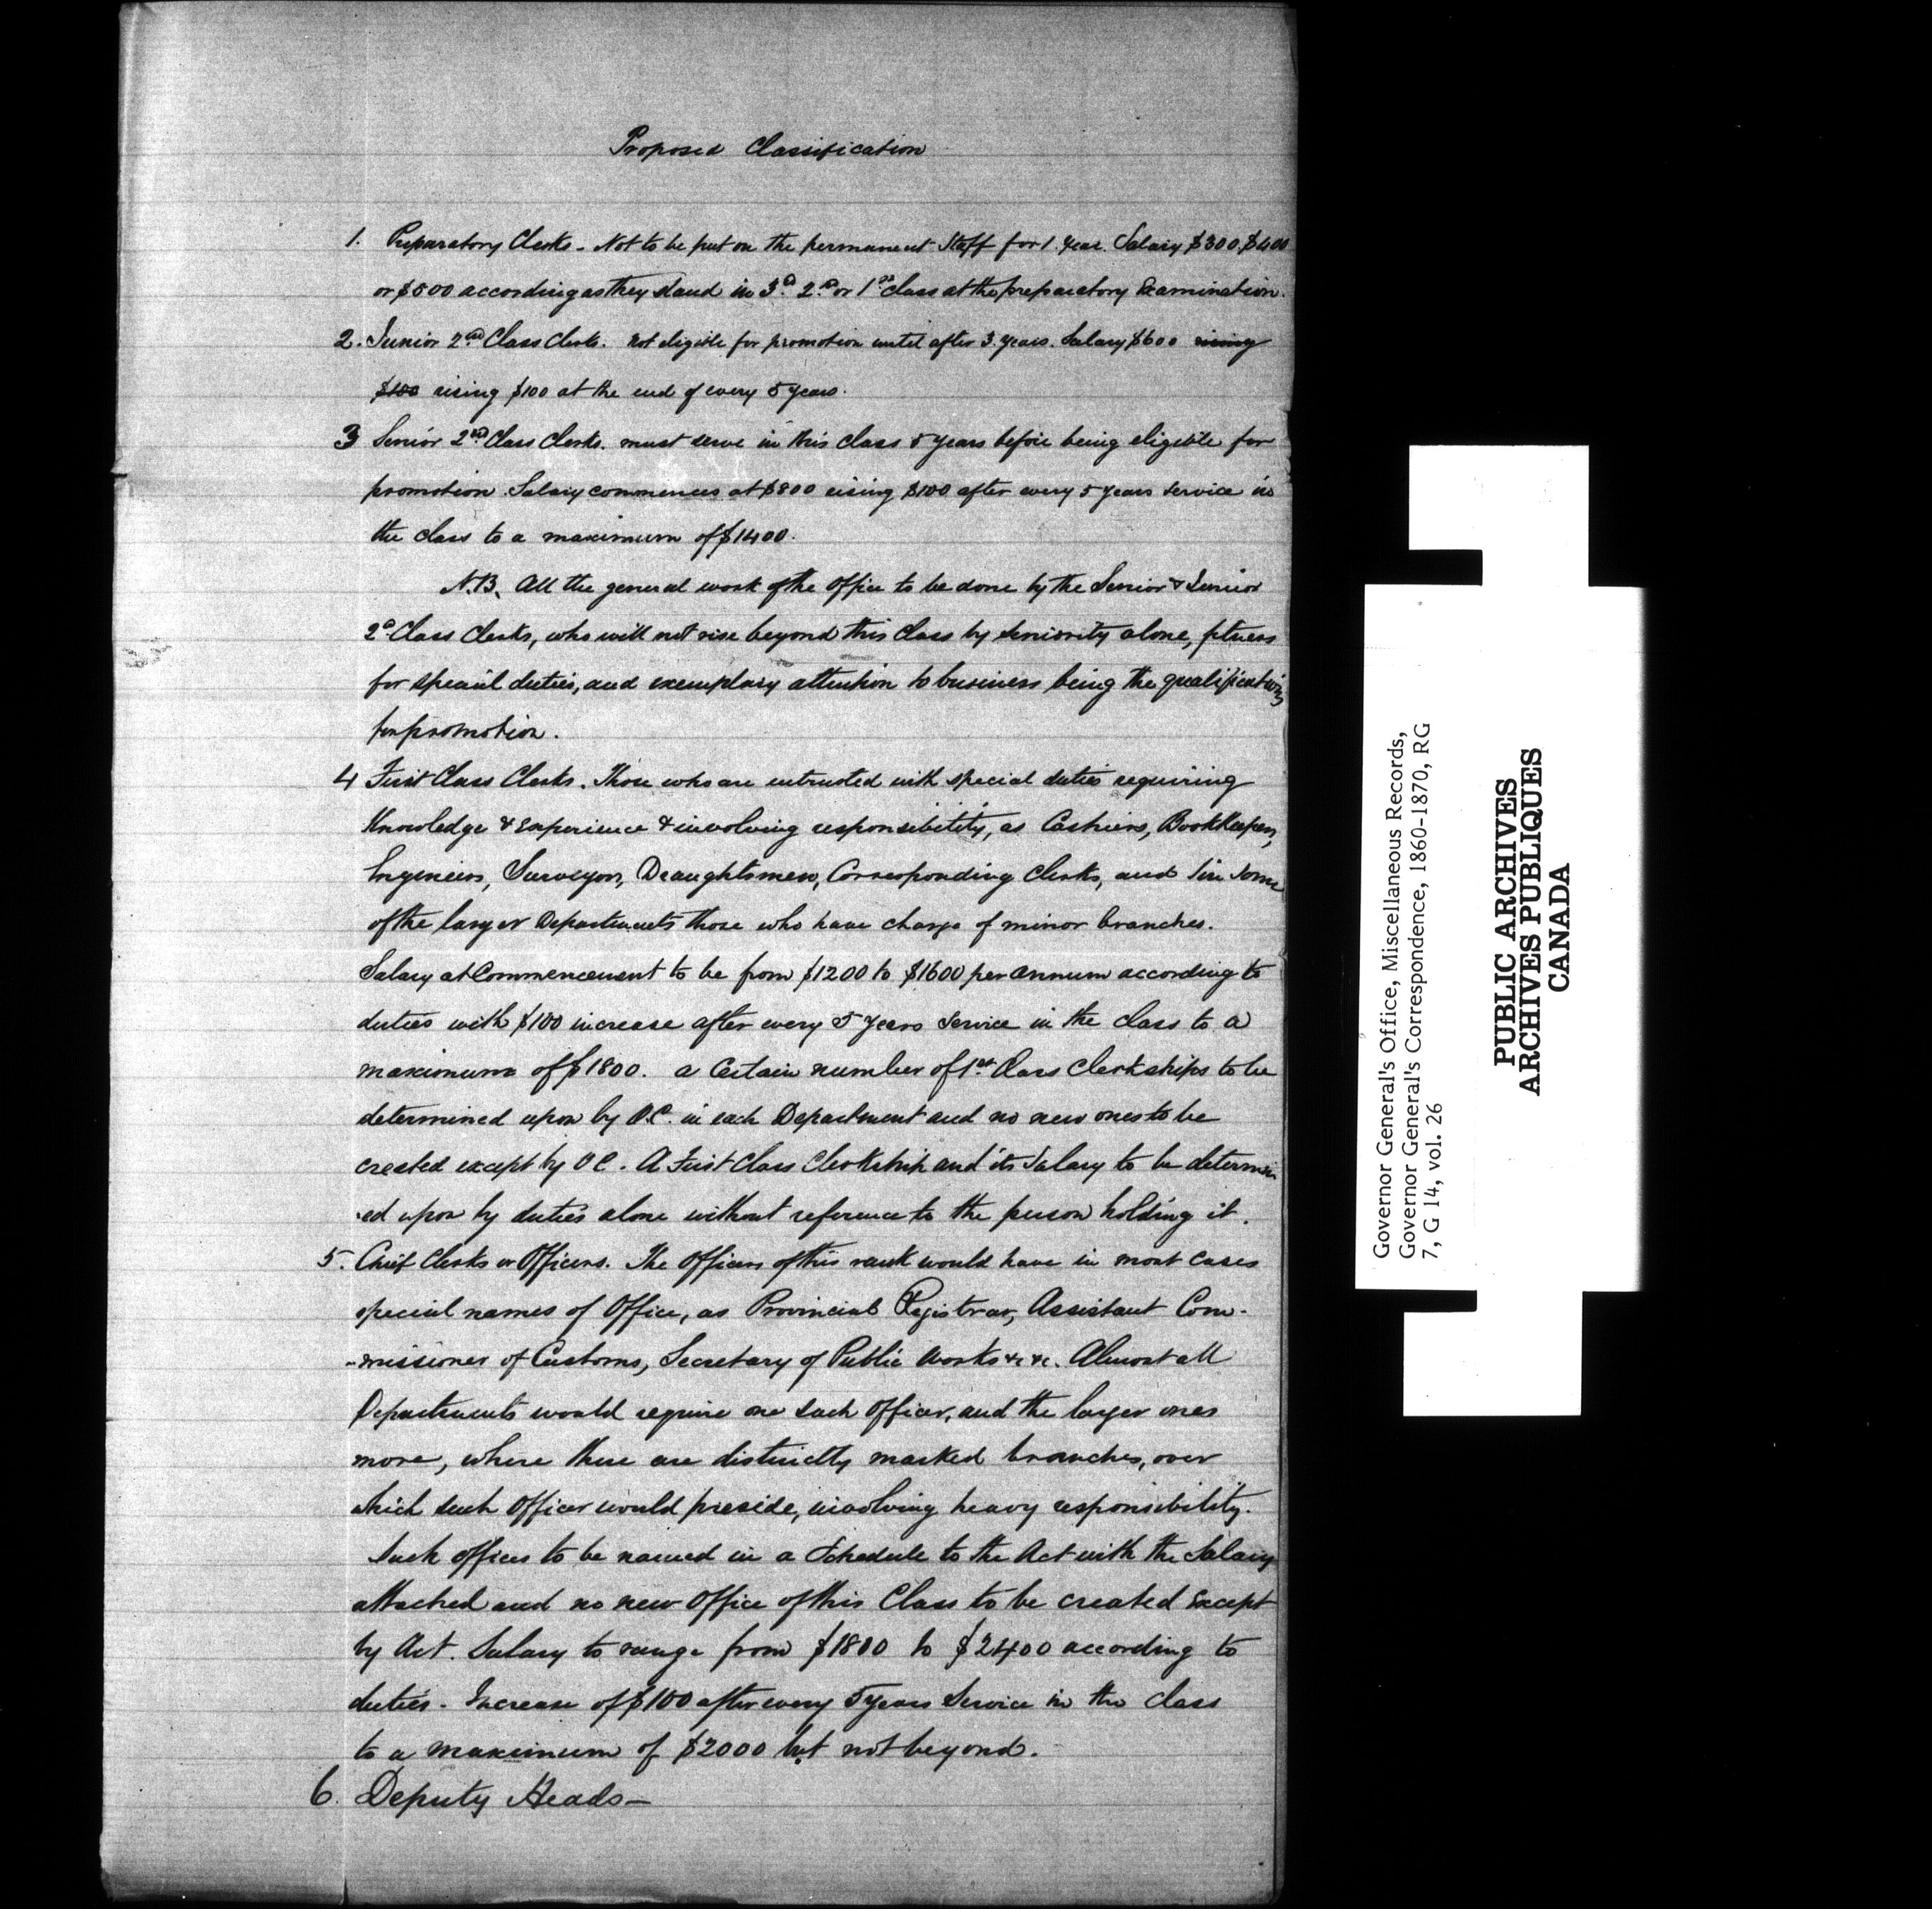 Proposed Classification
1. Preparatory Clerks - Not to be put on the permanent Staff for 1 year. Salary $300, $400
or $500 according as they stand in 3d 2d or 1st class at the preparatory Examination.
2. Junior 2nd Class Clerks. not eligible for promotion until after 3 years. Salary $600 rising
$100 rising $100 at the end of every 5 years.
3 Senior 2nd Class Clerks. must serve in this class 5 years before being eligible for
promotion. Salary commences at $800 rising $100 after every 5 years service in
the class to a maximum of $1400.
N.B. All the general work of the Office to be done by the Senior & Junior
2d Class Clerks, who will not rise beyond this class by seniority alone, fitness
for special duties, and exemplary attention to business being the qualifications
for promotion.
4 First Class Clerks. Those who are entrusted with special duties requiring
Knowledge & experience & involving responsibility, as Cashiers, BookKeepers,
Engineers, Surveyors, Draughtsmen, Corresponding Clerks, and in some
of the larger Departments those who have charge of minor branches.
Salary at Commencement to be from $1200 to $1600 per annum according to
duties with $100 increase after every 5 years service in the class to a
maximum of $1800. a Certain number of 1st Class Clerkships to be
determined upon by O.C. in each Department and no new ones to be
created except by O C. A First Class Clerkship and its Salary to be determin
-ed upon by duties alone without reference to the person holding it.
5. Chief Clerks or Officers. The Officers of this rank would have in most cases
special names of Office, as Provincial Registrar, Assistant Com-
-missioner of Customs, Secretary of Public Works &c &c. Almost all
Departments would require one such officer, and the larger ones
more, where there are distinctly marked branches, over
which such Officer would preside, involving heavy responsibility.
Such offices to be named in a Schedule to the Act with the Salary
attached and no new Office of this Class to be created Except
by Act. Salary to range from $1800 to $2400 according to
duties. Increase of $100 after every 5 years Service in the class
to a maximum of $2000 but not beyond.
6. Deputy Heads -
Governor General's Office, Miscellaneous Records,
Governor General's Correspondence, 1860-1870, RG
7, G 14, vol. 26
PUBLIC ARCHIVES
ARCHIVES PUBLIQUES
CANADA